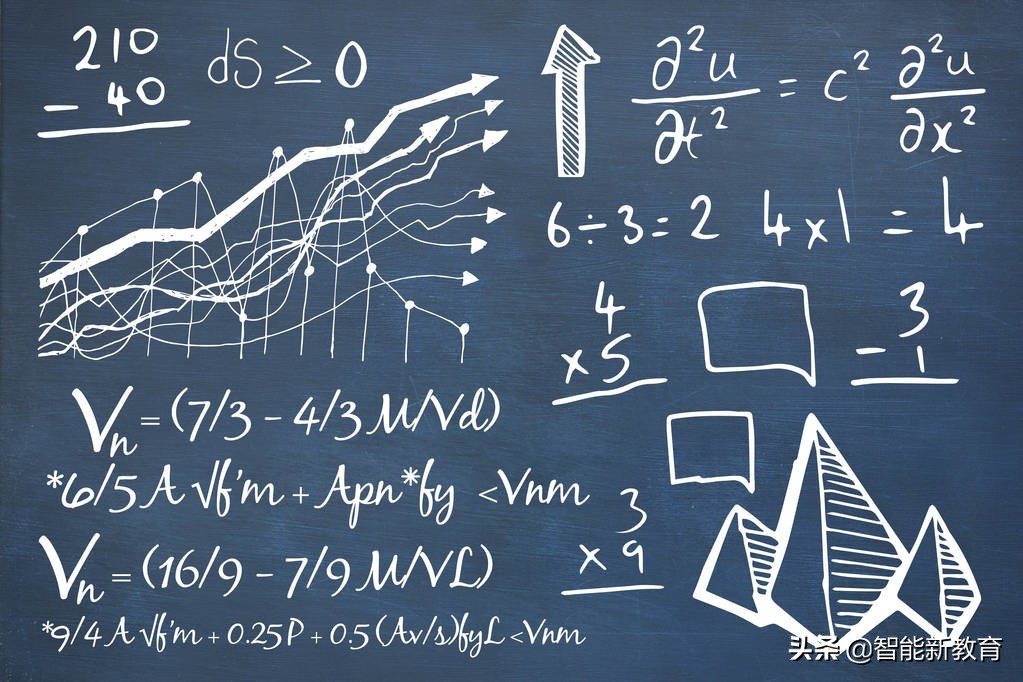 210
- 40
dS ≥ 0
∂²u/∂t² = c² ∂²u/∂x²
6÷3=2
4x1=4
4
x5
3
- 1
Vn = (7/3 - 4/3 M/Vd)
*6/5 A √f'm + Apn*fy <Vnm
3
x 9
Vn = (16/9 - 7/9 M/VL)
*9/4 A √f'm + 0.25P + 0.5 (Av/s)fyL <Vnm
头条 @智能新教育